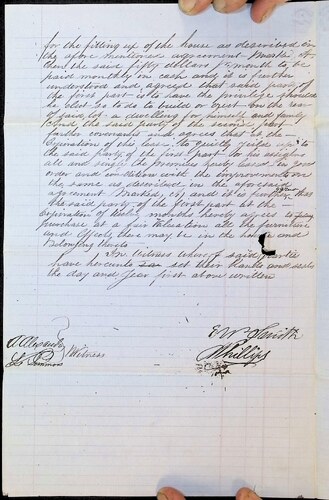 for the fitting up of the house as described in
the afore mentioned agreement Marked A
then the said fifty dollars per month to be
paid monthly in cash and it is further
understood and agreed that said party of
the first part is to have the privilege should
he elect so to do to build or erect on the rear
of said lot a dwelling for himself and family
And the said party of the second part
further covenants and agrees that at the
Expiration of this lease to quietly yield up to
the said party of the first part or his assigns
all and singular the premises hereby leased in good
order and condition with the improvements on
the same as described in the aforesaid
agreement Marked and it is further
the said party of the first part at the
expiration of twenty months hereby agrees to
purchase at a fair Valuation all the furniture
and Effects there may be in the house and
Belonging thereto
In Witness whereof said parties
have hereunto set their hands and seals
the day and year first above written
Witness
Phillips